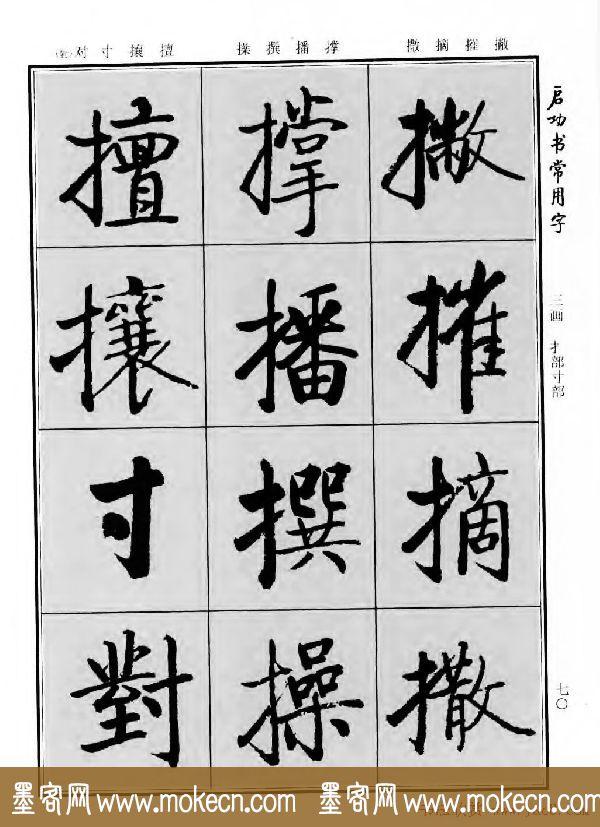 启功书常用字
三画 扌部寸部
七〇
撇摧摘撒
撑播撰操
擅攘寸对(對)
撇
摧
摘
撒
撑
播
撰
操
擅
攘
寸
對
墨客网 www.mokecn.com 墨客网 www.mokecn.com